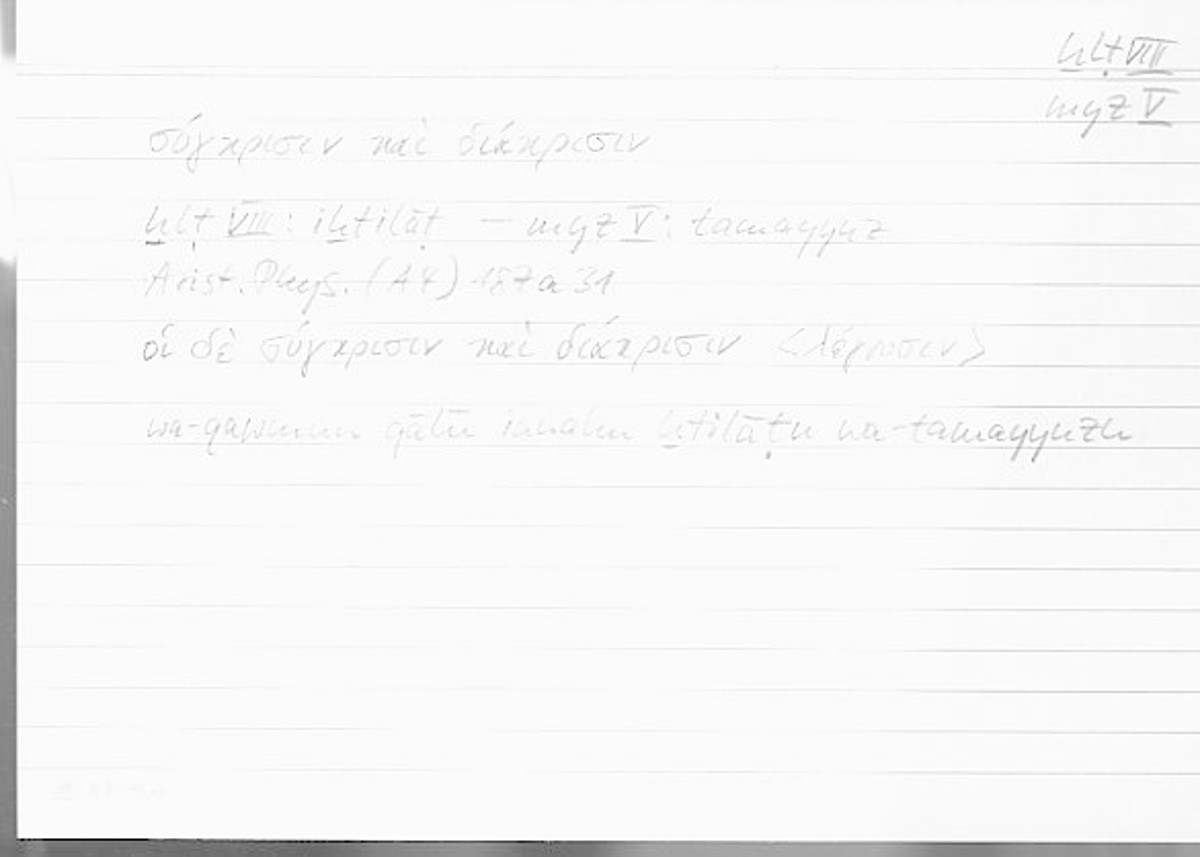 ḫlṭ VIII
myz V
σύγκρισιν καὶ διάκρισιν
ḫlṭ VIII: iḫtilāṭ — myz V: tamayyuz
Arist. Phys. (A4) 187a31
οἱ δὲ σύγκρισιν καὶ διάκρισιν <λέγουσιν>
wa-qawmun qālū innahu ḫtilāṭu wa-tamayyuzu